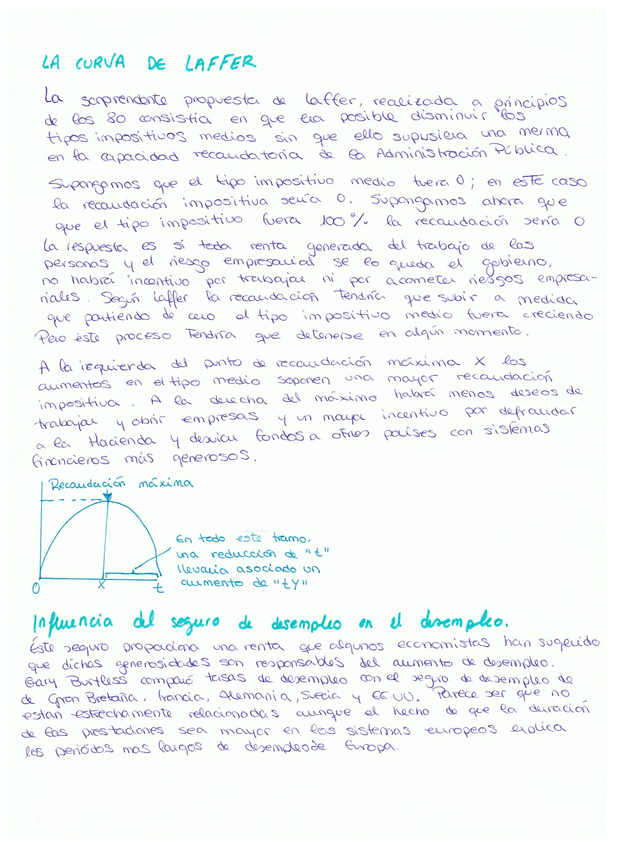 LA CURVA DE LAFFER
La sorprendente propuesta de Laffer, realizada a principios
de los 80 consistía en que era posible disminuir los
tipos impositivos medios sin que ello supusiera una merma
en la capacidad recaudatoria de la Administración Pública.
Supongamos que el tipo impositivo medio fuera 0; en este caso
la recaudación impositiva sería 0. Supongamos ahora que
que el tipo impositivo fuera 100% la recaudación sería 0
La respuesta es si toda renta generada del trabajo de las
personas y el riesgo empresarial se lo queda el gobierno,
no habrá incentivo por trabajar ni por acometer riesgos empresa-
riales. Según Laffer la recaudación tendría que subir a medida
que partiendo de cero el tipo impositivo medio fuera creciendo
Pero este proceso tendría que detenerse en algún momento.
A la izquierda del punto de recaudación máxima X los
aumentos en el tipo medio suponen una mayor recaudación
impositiva. A la derecha del máximo habrá menos deseos de
trabajar y abrir empresas y un mayor incentivo por defraudar
a la Hacienda y desviar fondos a otros países con sistemas
financieros más generosos.
Recaudación máxima
En todo este tramo,
una reducción de "t"
llevaría asociado un
aumento de "tY"
0 X t
Influencia del seguro de desempleo en el desempleo.
Éste seguro propociona una renta que algunos economistas han sugerido
que dichas generosidades son responsables del aumento de desempleo.
Gary Burtless comparó tasas de desempleo con el seguro de desempleo de
de Gran Bretaña, Francia, Alemania, Suecia y EE.UU. Parece ser que no
estan estrechamente relacionadas aunque el hecho de que la duración
de las prestaciones sea mayor en los sistemas europeos explica
los periódos mas largos de desempleo de Europa.